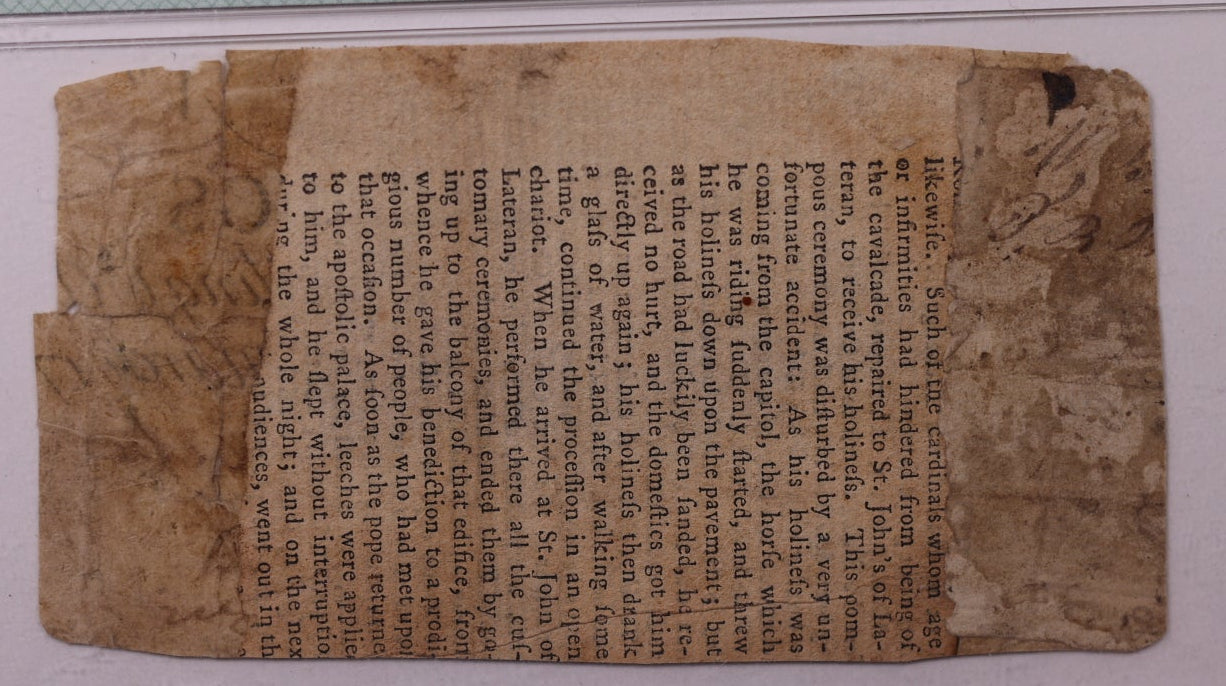 likewiſe. Such of the cardinals whom age
or infirmities had hindered from being of
the cavalcade, repaired to St. John's of La-
teran, to receive his holineſs. This pom-
pous ceremony was diſturbed by a very un-
fortunate accident: As his holineſs was
coming from the capitol, the horſe which
he was riding ſuddenly ſtarted, and threw
his holineſs down upon the pavement; but
as the road had luckily been ſanded, he re-
ceived no hurt, and the domeſtics got him
directly up again; his holineſs then drank
a glaſs of water, and after walking ſome
time, continued the proceſſion in an open
chariot. When he arrived at St. John of
Lateran, he performed there all the cuſ-
tomary ceremonies, and ended them by go-
ing up to the balcony of that edifice, from
whence he gave his benediction to a prodi-
gious number of people, who had met upon
that occaſion. As ſoon as the pope returne
to the apoſtolic palace, leeches were applie
to him, and he ſlept without interruptio
during the whole night; and on the nex
audiences, went out in th